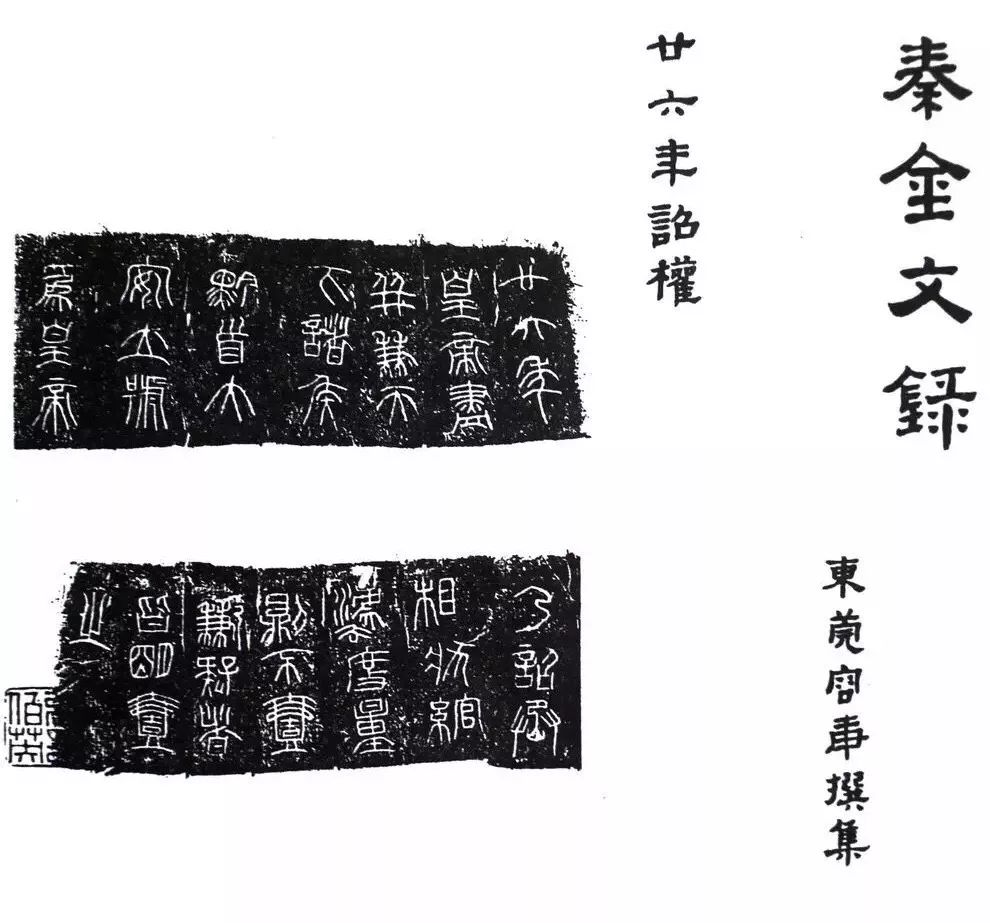 秦金文錄
東莞容庚撰集
廿六年詔權
廿六年
皇帝盡
并兼天
下諸侯
黔首大
安立號
爲皇帝
乃詔丞
相狀綰
灋度量
則不壹
歉疑者
皆明壹
之